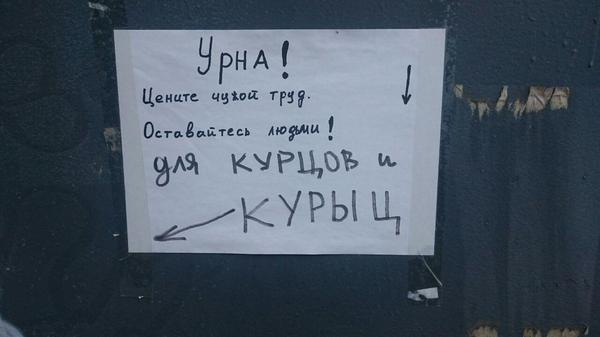 Урна!
Цените чужой труд.
Оставайтесь людьми!
для КУРЦОВ и
КУРЫЦ